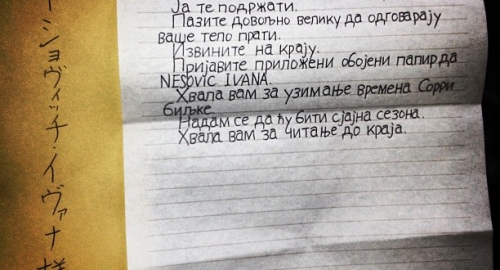 Ја те подржати.
Пазите довољно велику да одговарају
ваше тело прати.
Извините на крају.
Пријавите приложени обојени папир да
NESOVIC IVANA.
Хвала вам за узимање времена Сорри
биљке.
Надам се да ћу бити сјајна сезона.
Хвала вам за читање до краја.
ーショヴィッチ・イヴァナ様